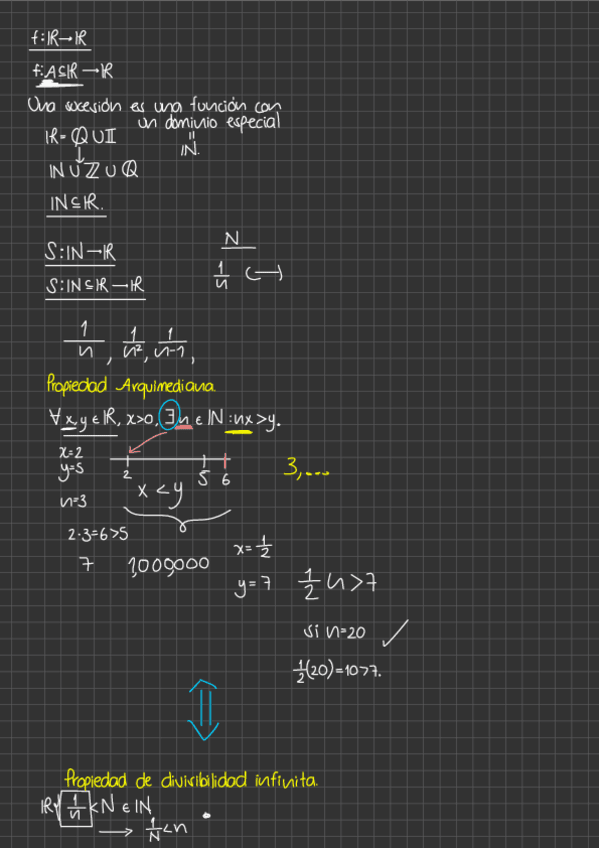 f:ℝ→ℝ
f:A⊆ℝ→ℝ
Una sucesión es una función con
un dominio especial
ℝ=ℚ∪𝕀
=
ℕ.
↓
ℕ∪ℤ∪ℚ
ℕ⊆ℝ.
S:ℕ→ℝ
N
S:ℕ⊆ℝ→ℝ
1/n
1/n, 1/n², 1/n-1,
Propiedad Arquimediana.
∀x,y∈ℝ, x>0, ∃n∈ℕ:nx>y.
x=2
y=5
2 5 6
3,...
x<y
n=3
2·3=6>5
7 1,000,000
x=1/2
y=7
1/2 n>7
si n=20 ✓
1/2(20)=10>7.
⇕
Propiedad de divisibilidad infinita.
1/n <N∈ℕ
→ 1/N<n